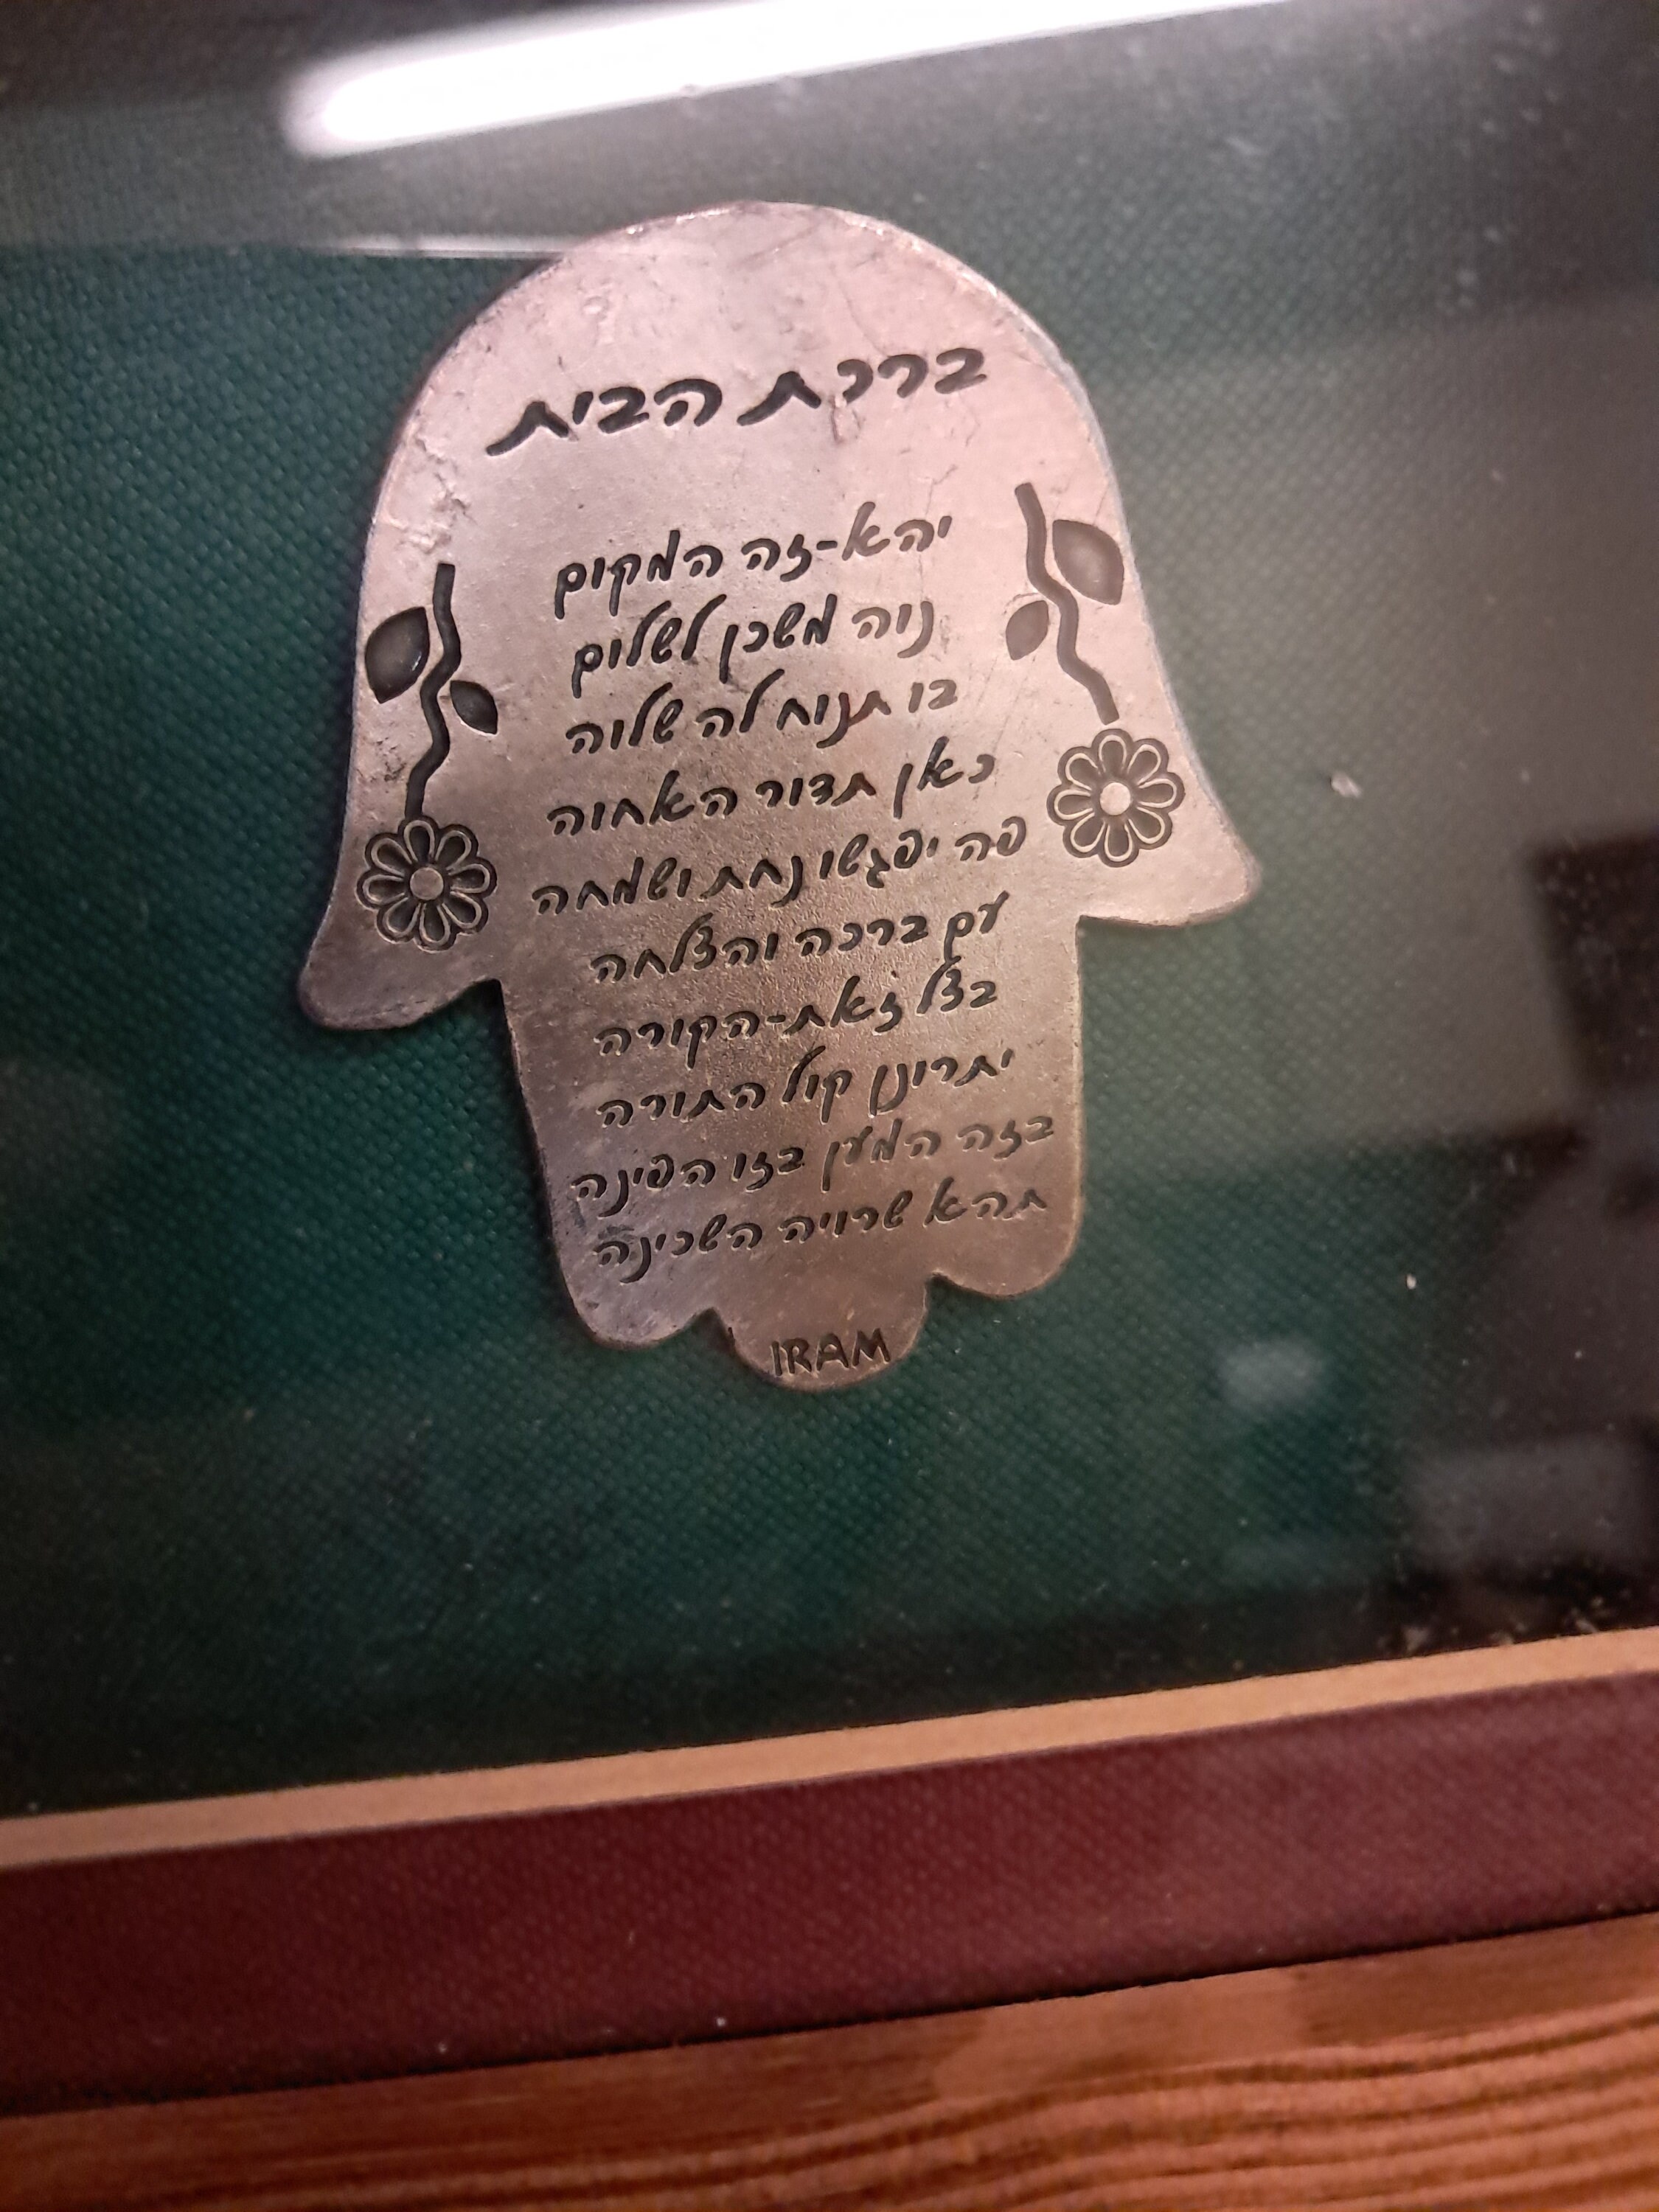 ברכת הבית
יהא-זה המקום
נוה משכן לשלום
בו תנוח לה שלוה
כאן תדור האחוה
פה יפגשו נחת ושמחה
עם ברכה והצלחה
בצל זאת-הקורה
יתרונן קול התורה
בזה המעון בזו הפינה
תהא שרויה השכינה
IRAM